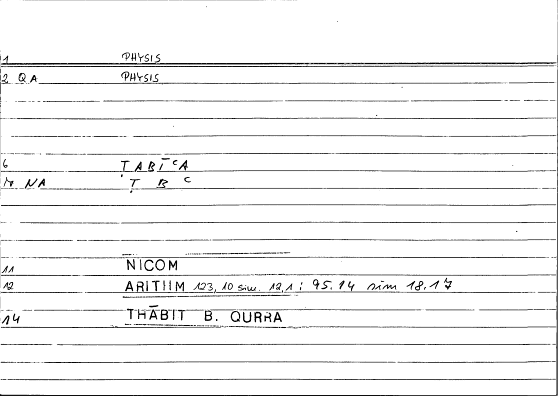 1 PHYSIS
2 QA PHYSIS
6 ṬABĪᶜA
NA Ṭ B ᶜ
11 NICOM
12 ARITHM 123,10 sim. 12,1 : 95.14 sim 18.17
14 THĀBIT B. QURRA